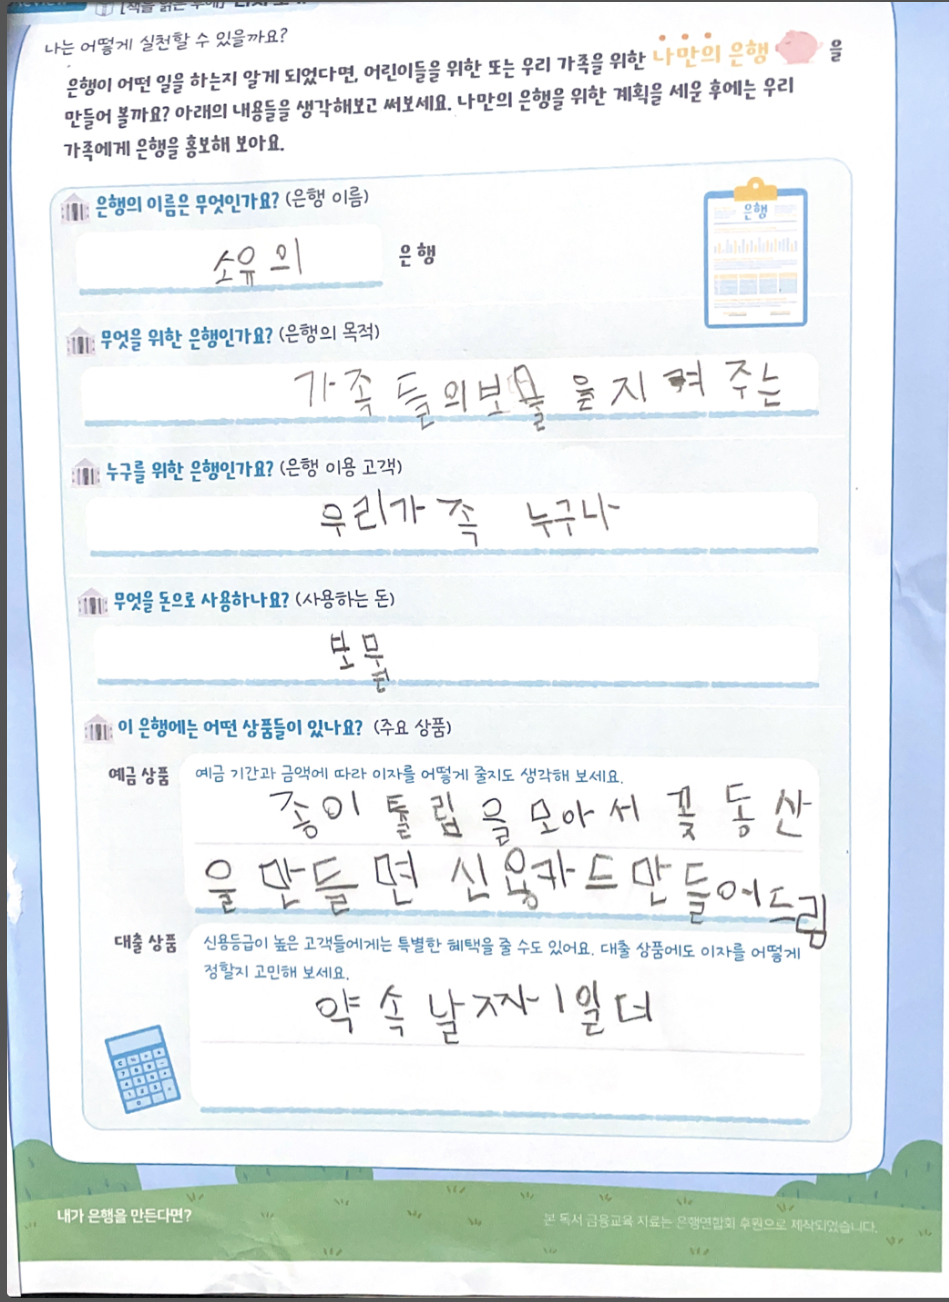 [책을 읽은 후에]
나는 어떻게 실천할 수 있을까요?
은행이 어떤 일을 하는지 알게 되었다면, 어린이들을 위한 또는 우리 가족을 위한 나만의 은행 을
만들어 볼까요? 아래의 내용들을 생각해보고 써보세요. 나만의 은행을 위한 계획을 세운 후에는 우리
가족에게 은행을 홍보해 보아요.
은행의 이름은 무엇인가요? (은행 이름)
은행
소유의 은행
무엇을 위한 은행인가요? (은행의 목적)
가족들의보물을지켜주는
누구를 위한 은행인가요? (은행 이용 고객)
우리가족 누구나
무엇을 돈으로 사용하나요? (사용하는 돈)
보물
이 은행에는 어떤 상품들이 있나요? (주요 상품)
예금 상품 예금 기간과 금액에 따라 이자를 어떻게 줄지도 생각해 보세요.
종이 튤립을모아서 꽃동산
을만들면 신용카드만들어드림
대출 상품 신용등급이 높은 고객들에게는 특별한 혜택을 줄 수도 있어요. 대출 상품에도 이자를 어떻게
정할지 고민해 보세요.
약속날짜1일더
내가 은행을 만든다면?
본 독서 금융교육 자료는 은행연합회 후원으로 제작되었습니다.